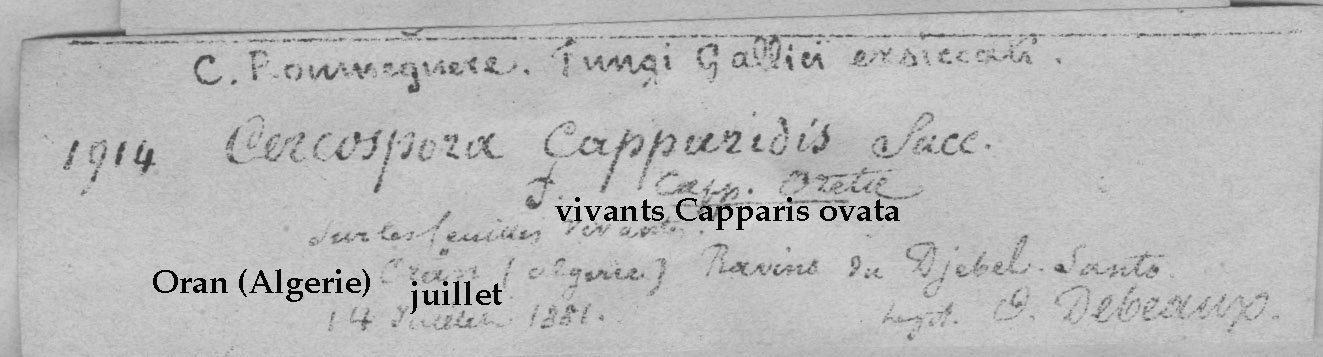 C. Roumeguere. Fungi Gallici exsiccati.
1914 Cercospora Capparidis Sacc.
f. Capp. Ovatæ
vivants Capparis ovata
sur les feuilles vivantes.
Oran (Algerie) Oran (Algerie) Ravins du Djebel-Santo.
juillet
14 Juillet 1881. Legit. O. Debeaux.